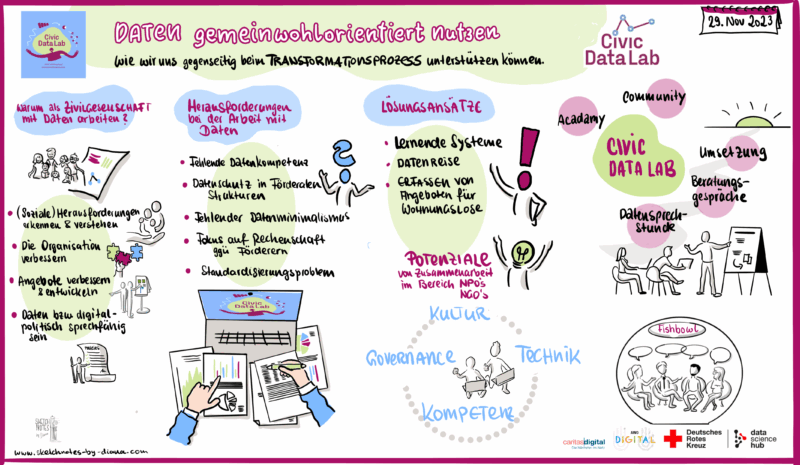 Civic
Data Lab
DATEN gemeinwohlorientiert nutzen
Wie wir uns gegenseitig beim TRANSFORMATIONSPROZESS unterstützen können.
CIVIC
DATA LAB
29. Nov 2023
Warum als ZIVILGESELLSCHAFT
mit Daten arbeiten?
(Soziale) Herausforderungen
erkennen & verstehen
Die Organisation
verbessern
Angebote verbessern
& entwickeln
Daten bzw digital-
politisch sprechfähig
sein
Herausforderungen
bei der Arbeit mit
Daten
• Fehlende Datenkompetenz
• Datenschutz in Förderalen
Strukturen
• Fehlender Datenminimalismus
• Fokus auf Rechenschaft
ggü Förderern
• Standardisierungsproblem
Civic
Data Lab
LÖSUNGSANSÄTZE
• Lernende Systeme
• DATENREISE
• ERFASSEN von
Angeboten für
Wohnungslose
POTENZIALE
von Zusammenarbeit
im Bereich NPO's
NGO's
KULTUR
GOVERNANCE
TECHNIK
KOMPETENZ
Community
Acadamy
CIVIC
DATA LAB
Umsetzung
Beratungs-
gespräche
Datensprech-
stunde
fishbowl
caritas digital
DIGITAL
Deutsches
Rotes
Kreuz
data
science
hub
www.sketchnotes-by-diana.com